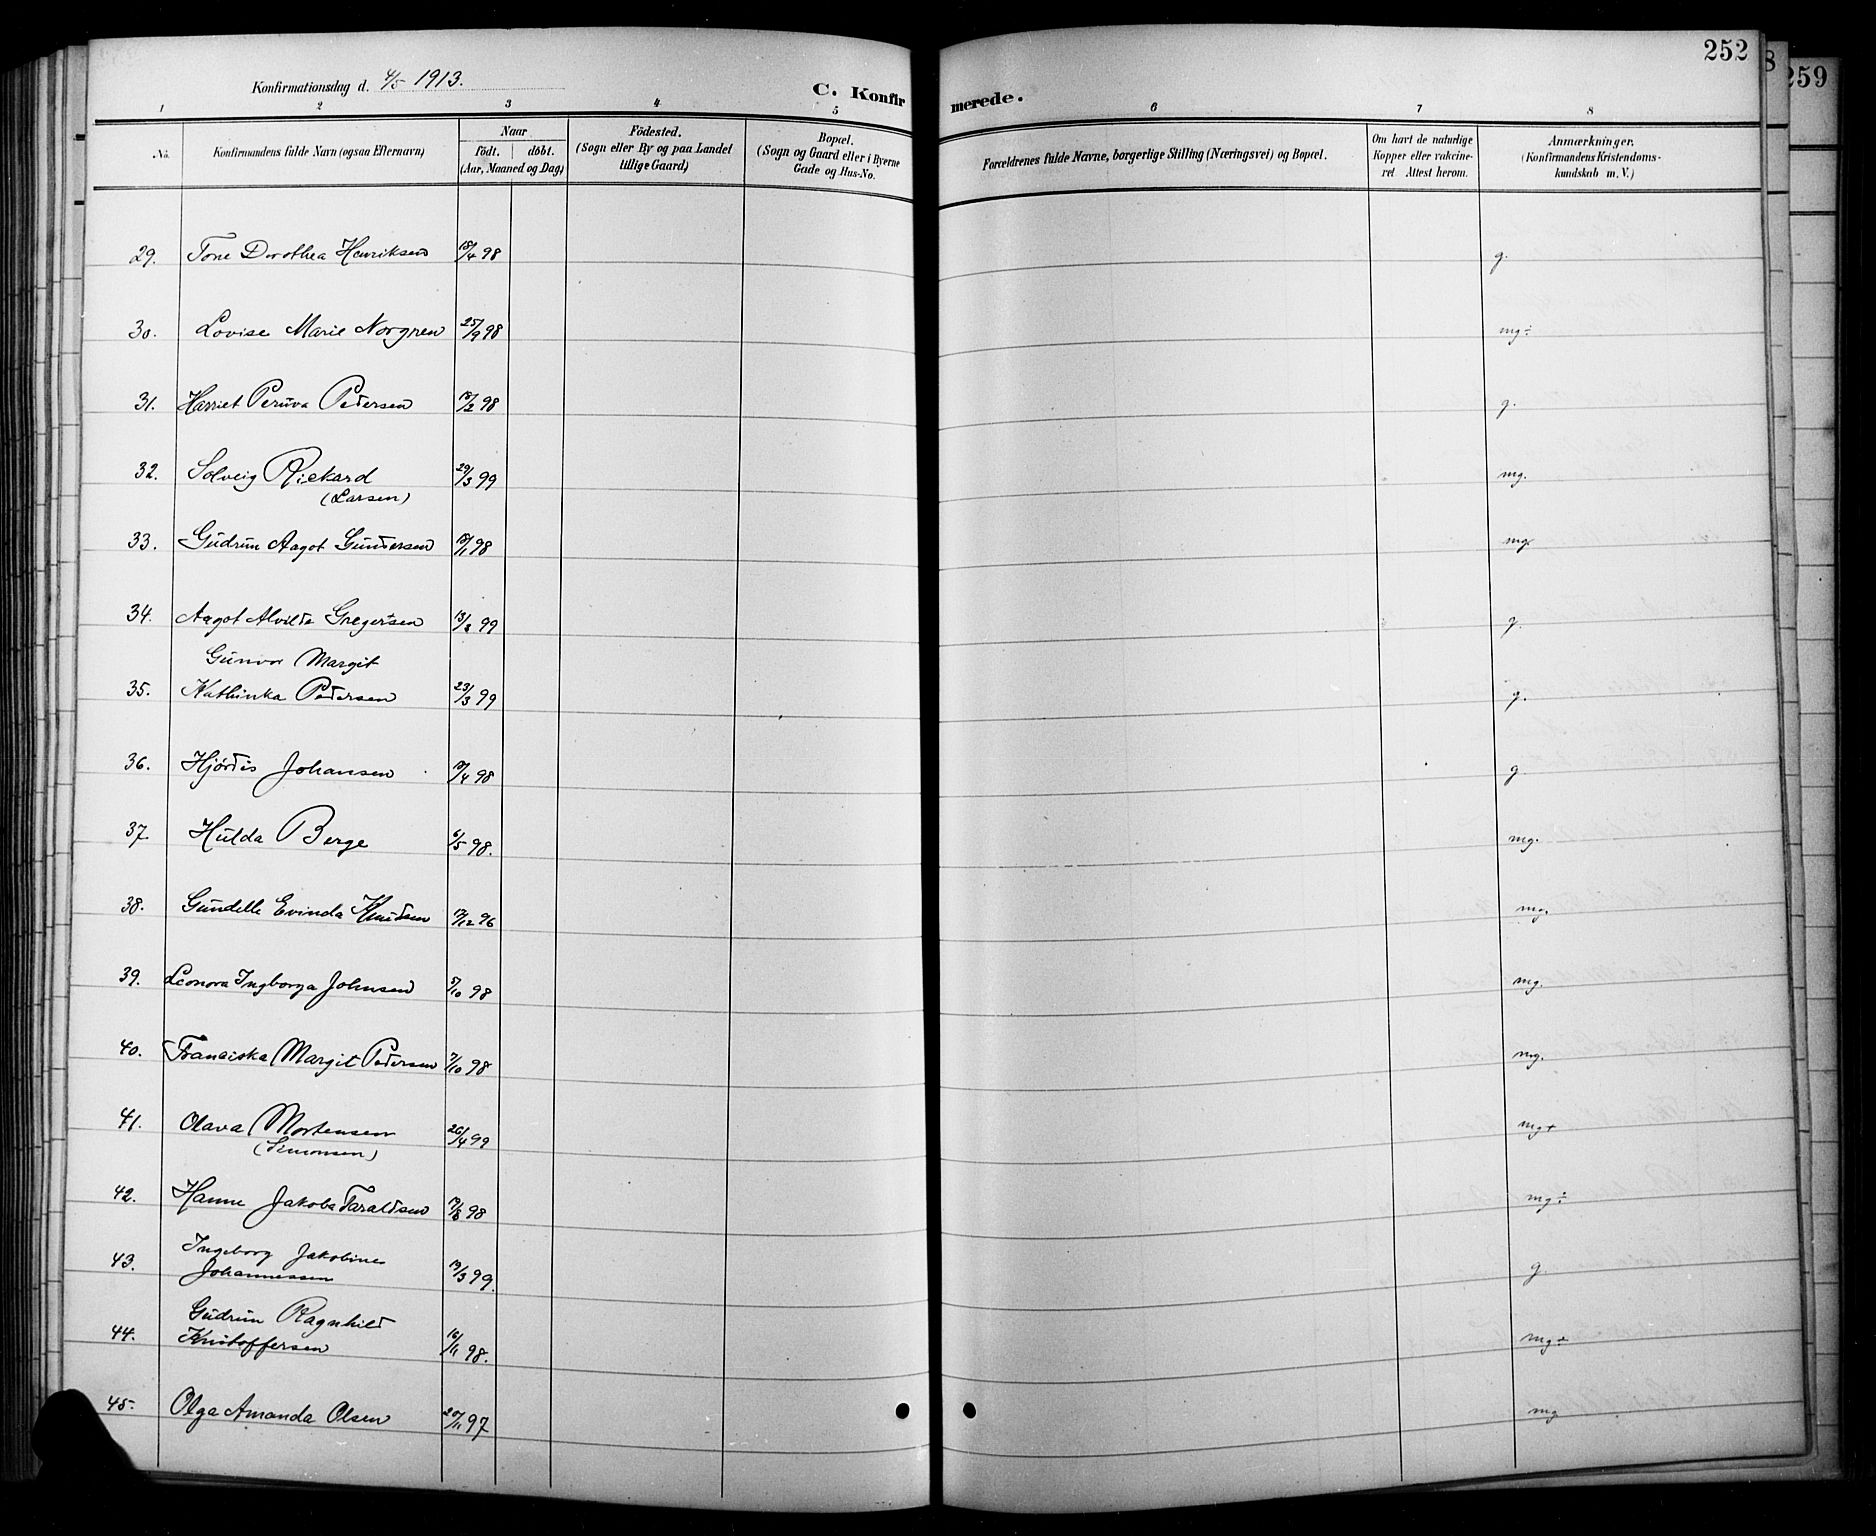 252
259
Konfirmationsdag d. 4/5 1913.
C. Konfir merede.
1 2 3 4 5 6 7 8
No. Konfirmandens fulde Navn (ogsaa Efternavn) Naar födt. döbt. (Aar, Maaned og Dag) Födested. (Sogn eller By og paa Landet tillige Gaard) Bopæl. (Sogn og Gaard eller i Byerne Gade og Hus-No. Forældrenes fulde Navne, borgerlige Stilling (Næringsvei) og Bopæl. Om havt de naturlige Kopper eller vakcineret Attest herom. Anmærkninger. (Konfirmandens Kristendomskundskab m. V.)
29. Tone Dorothea Henriksen 18/4 98 g.
30. Lovise Marie Norgren 25/9 98 mg÷
31. Harriet Peruva Pedersen /2 98 g.
32. Solveig Rickard 29/3 99 mg.
(Larsen)
33. Gudrun Aagot Gundersen /1 98 mg.
34. Aagot Alvilde Gregersen 13/3 99 g.
Gunvor Margit
35. Kathinka Pedersen 23/3 99 g.
36. Hjørdis Johansen /4 98 g.
37. Hulda Berge 6/5 98. mg.
38. Gundelle Evinda Knudsen /12 96 mg.
39. Leonora Ingborga Johnsen 5/10 98 mg.
40. Franciska Margit Pedersen 7/10 98 mg.
41. Olava Mortensen 26/4 99 mg+
(Simonsen)
42. Hanne Jakoba Taraldsen /8 98 mg÷
Ingeborg Jakobine
43. Johannessen 19/3 99. g.
Gudrun Ragnhild
44. Kristoffersen 16/11 98. mg+
45. Olga Amanda Olsen 20/11 97 mg